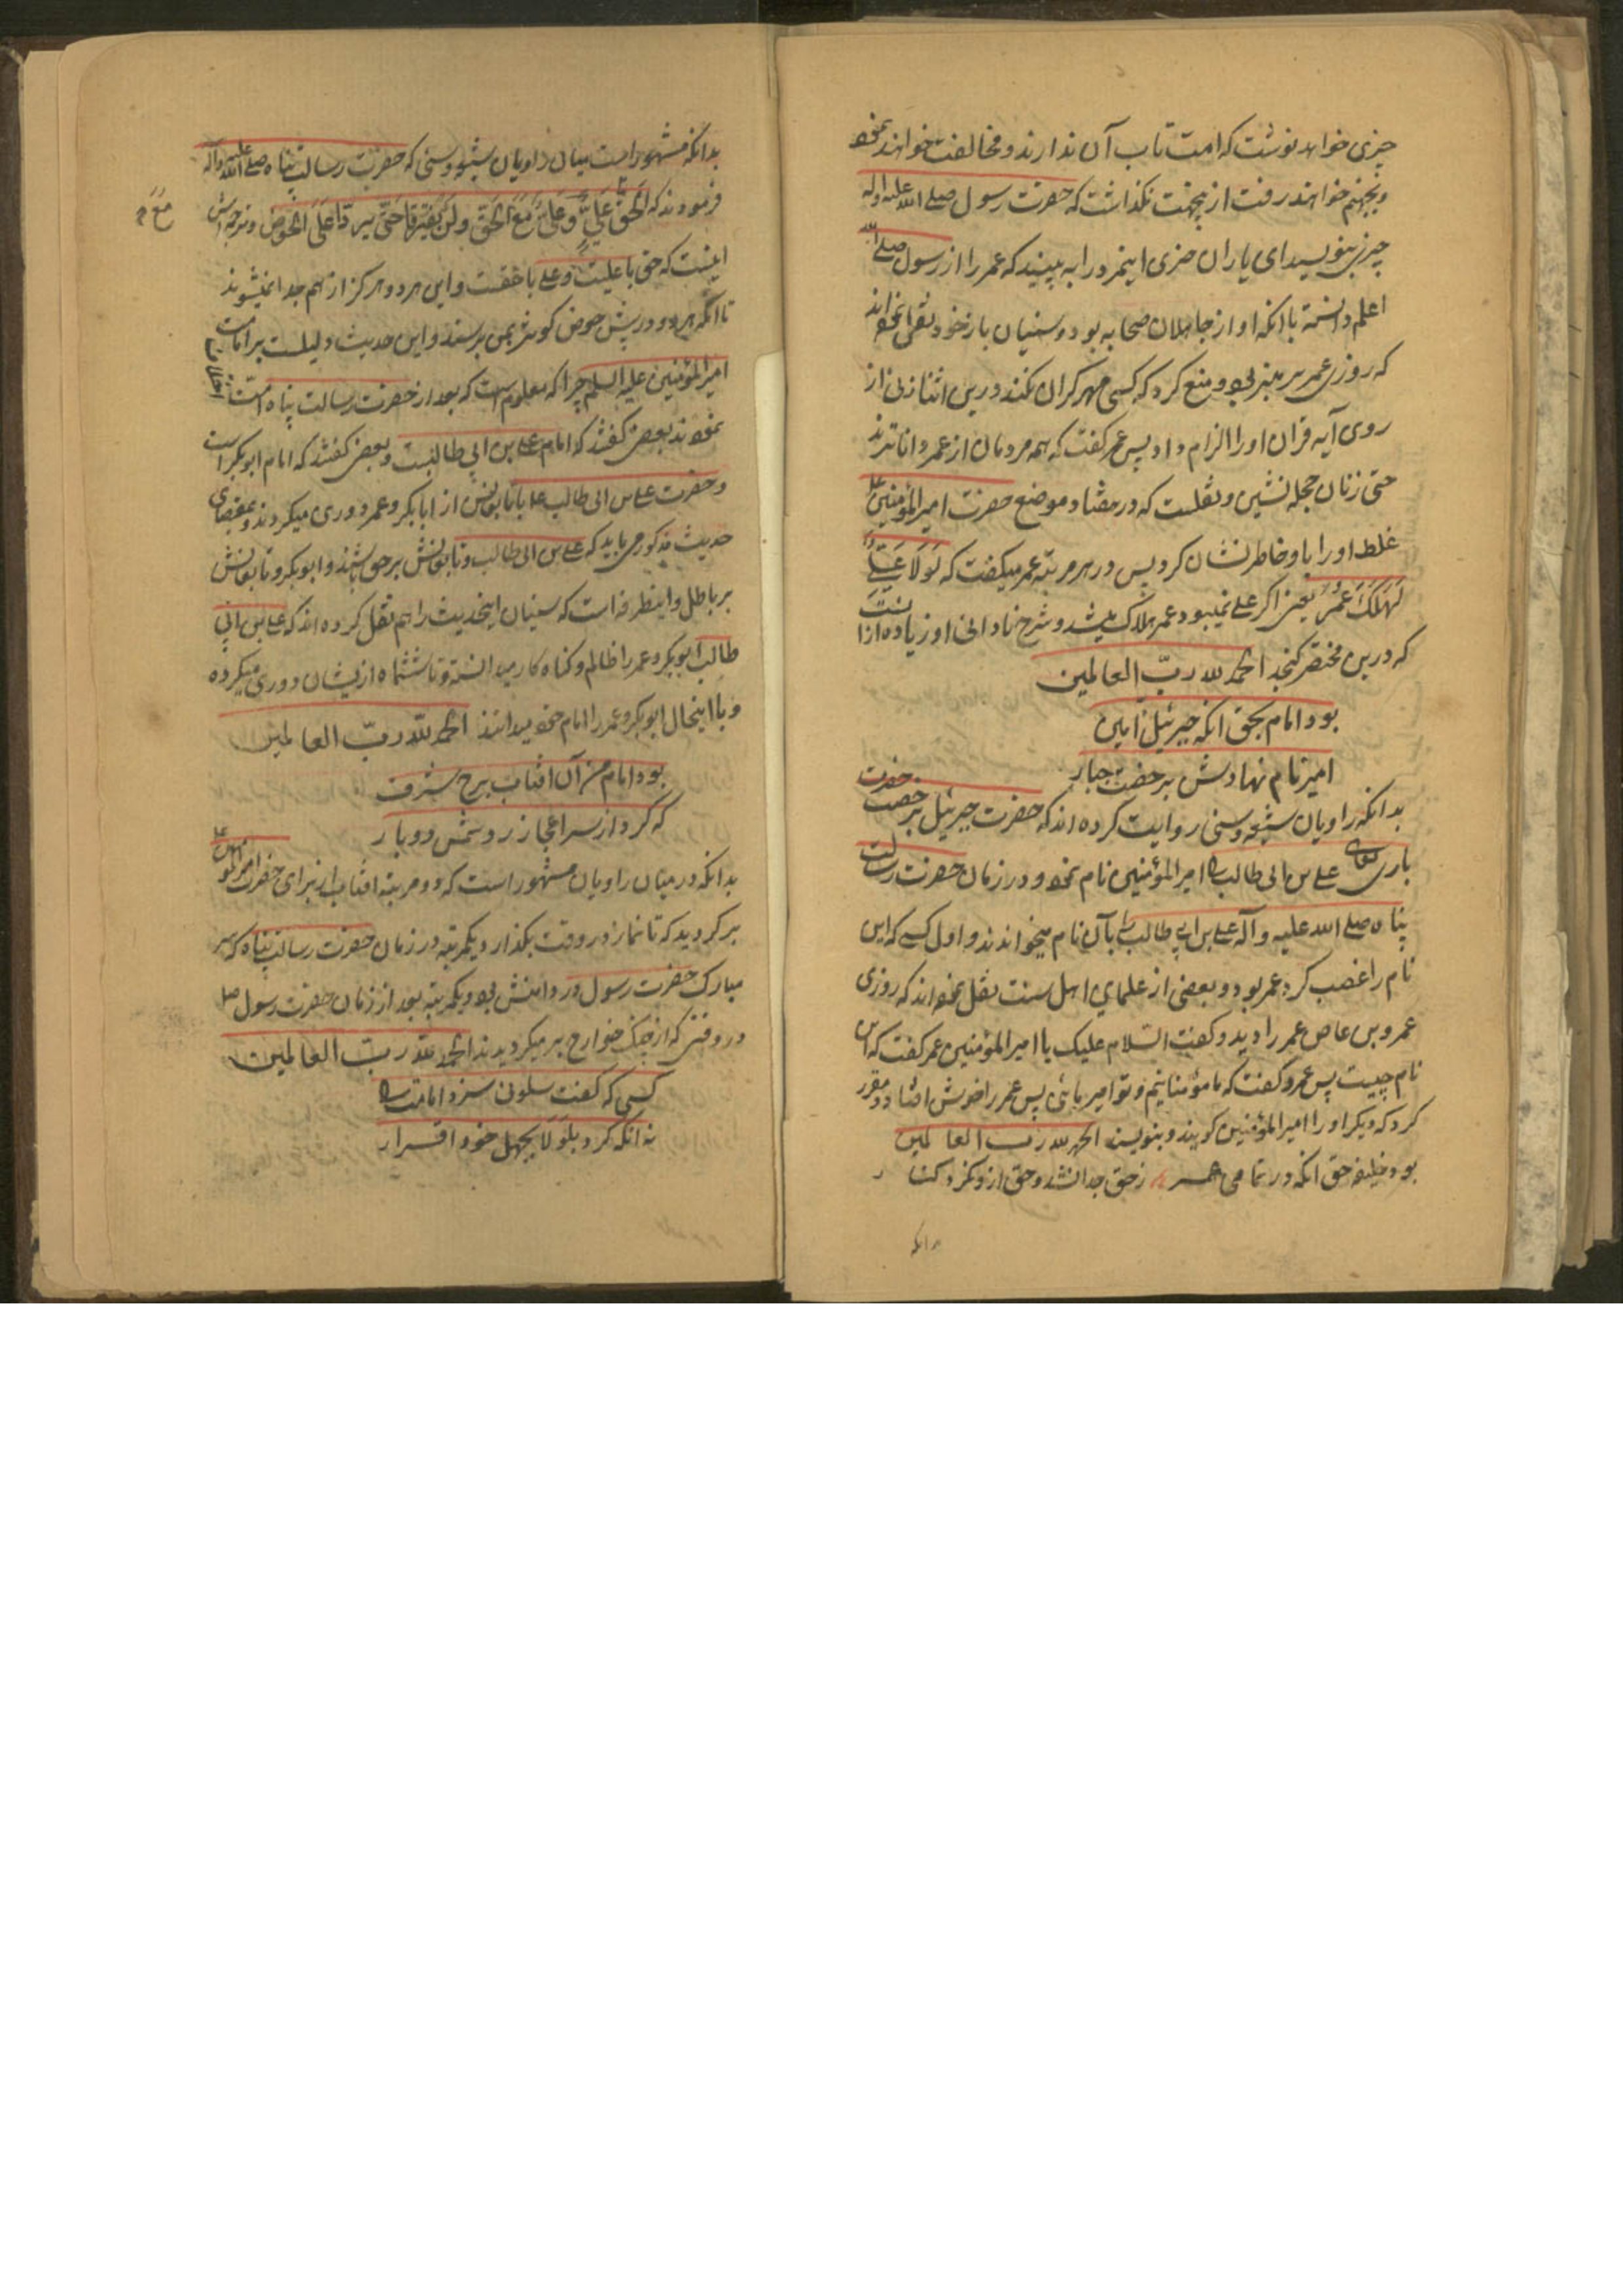 چیزی خواهد نوشت که امت تاب آن ندارند و مخالفت خواهند نمود
و بجهنم خواهند رفت ازینجهت نگذاشت که حضرت رسول صلی الله علیه و آله
چیزی بنویسد ای یاران خری اینمرد را به بینید که عمر را از رسول صلی الله
اعلم دانسته باانکه او از جاهلان صحابه بود و سنیان باز خود نقل نموده اند
که روزی عمر بر منبر بود و منع کرد که کسی مهر گران نکند درین اثنا زنی از
روی آیه قران او را الزام داد پس عمر گفت که همه مردمان از عمر داناترند
حتی زنان حجله نشین و نقلست که در هفتاد موضع حضرت امیرالمؤمنین ع
غلط او را باو خاطر نشان کرد پس در هر مرتبه عمر میگفت که لَوْلَا عَلِیٌّ
لَهَلَكَ عُمَرُ یعنی اگر علی نمیبود عمر هلاک میشد و شرح نادانی او زیاده ازانست
که درین مختصر گنجد الحمد لله ربّ العالمین
بود امام بحق انکه جبرئیل امین
امیر نام نهادش بر حضرت جبار
بدانکه راویان شیعه و سنی روایت کرده اند که حضرت جبرئیل بر خصت حضرت
باری تعالی علی بن ابی طالب را امیرالمؤمنین نام نمود و در زمان حضرت رسالت
پناه صلی الله علیه و آله علی بن ابی طالب را بآن نام میخواندند و اول کسی که این
نام را غصب کرد عمر بود و بعضی از علمای اهل سنت نقل نموده اند که روزی
عمرو بن عاص عمر را دید و گفت السلام علیک یا امیرالمؤمنین عمر گفت که این
نام چیست پس عمرو گفت که ما مؤمنانیم و تو امیر مائی پس عمر را خوش افتاد و مقرر
کرد که دیگر او را امیرالمؤمنین گویند و بنویسند الحمد لله رب العالمین
بود خلیفه حق انکه در تمامی عمر ز حق جدا نشد و حق ازو نکرد کنار
بدانکه
بدانکه مشهور است میان راویان شیعه و سنی که حضرت رسالت پناه صلی الله علیه و آله
فرمودند که اَلحَقُّ مَعَ عَلِیٍّ وَ عَلِیٌّ مَعَ الحَقِّ وَلَن یَفتَرِقا حَتّی یَرِدا عَلَیَّ الحَوض و ترجمه اش
مَعَ
اینست که حق با علیست و علی با حقست و این هر دو هرگز از هم جدا نمیشوند
تا انکه هر دو در پیش حوض کوثر بمن برسند و این حدیث دلیلست بر امامت
امیرالمؤمنین علیه السلم چرا که معلومست که بعد از حضرت رسالت پناه امّت اختلاف
نمودند بعضی گفتند که امام علی بن ابی طالبست و بعضی گفتند که امام ابوبکر است
و حضرت علی بن ابی طالب با تابعانش از ابابکر و عمر دوری میکردند و بمقتضای
حدیث مذکور می باید که علی بن ابی طالب و تابعانش بر حق باشند و ابوبکر و تابعانش
بر باطل و اینطرفه است که سنیان اینحدیث را هم نقل کرده اند که علی بن ابی
طالب ابوبکر و عمر را ظالم و گناه کار میدانسته و تا ششماه ازیشان دوری میکرده
و با اینحال ابوبکر و عمر را امام خود میدانند الحمد للّه ربّ العالمین
بود امام من آن افتاب برج شرف
که کرد از سر اعجاز رد شمس دو بار
بدانکه در میان راویان مشهور است که دو مرتبه افتاب از برای حضرت امیرالمؤمنین ع
برگردید که تا نماز در وقت بگذارد یکمرتبه در زمان حضرت رسالت پناه که سر
مبارک حضرت رسول در دامنش بود و یکمرتبه بعد از زمان حضرت رسول ص
در وقتی که از جنگ خوارج برمیگردیدند الحمد لله ربّ العالمین
کسی که گفت سلونی سزد امامت را
نه انکه کرد بلَولَا بجهل خود اقرار